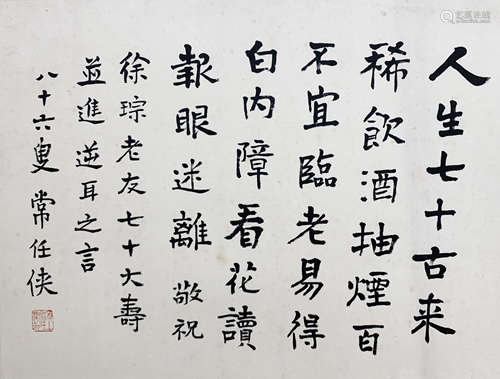 人生七十古来
稀飲酒抽煙百
不宜臨老易得
白内障看花讀
報眼迷離敬祝
徐琮老友七十大壽
並進逆耳之言
八十六叟常任侠